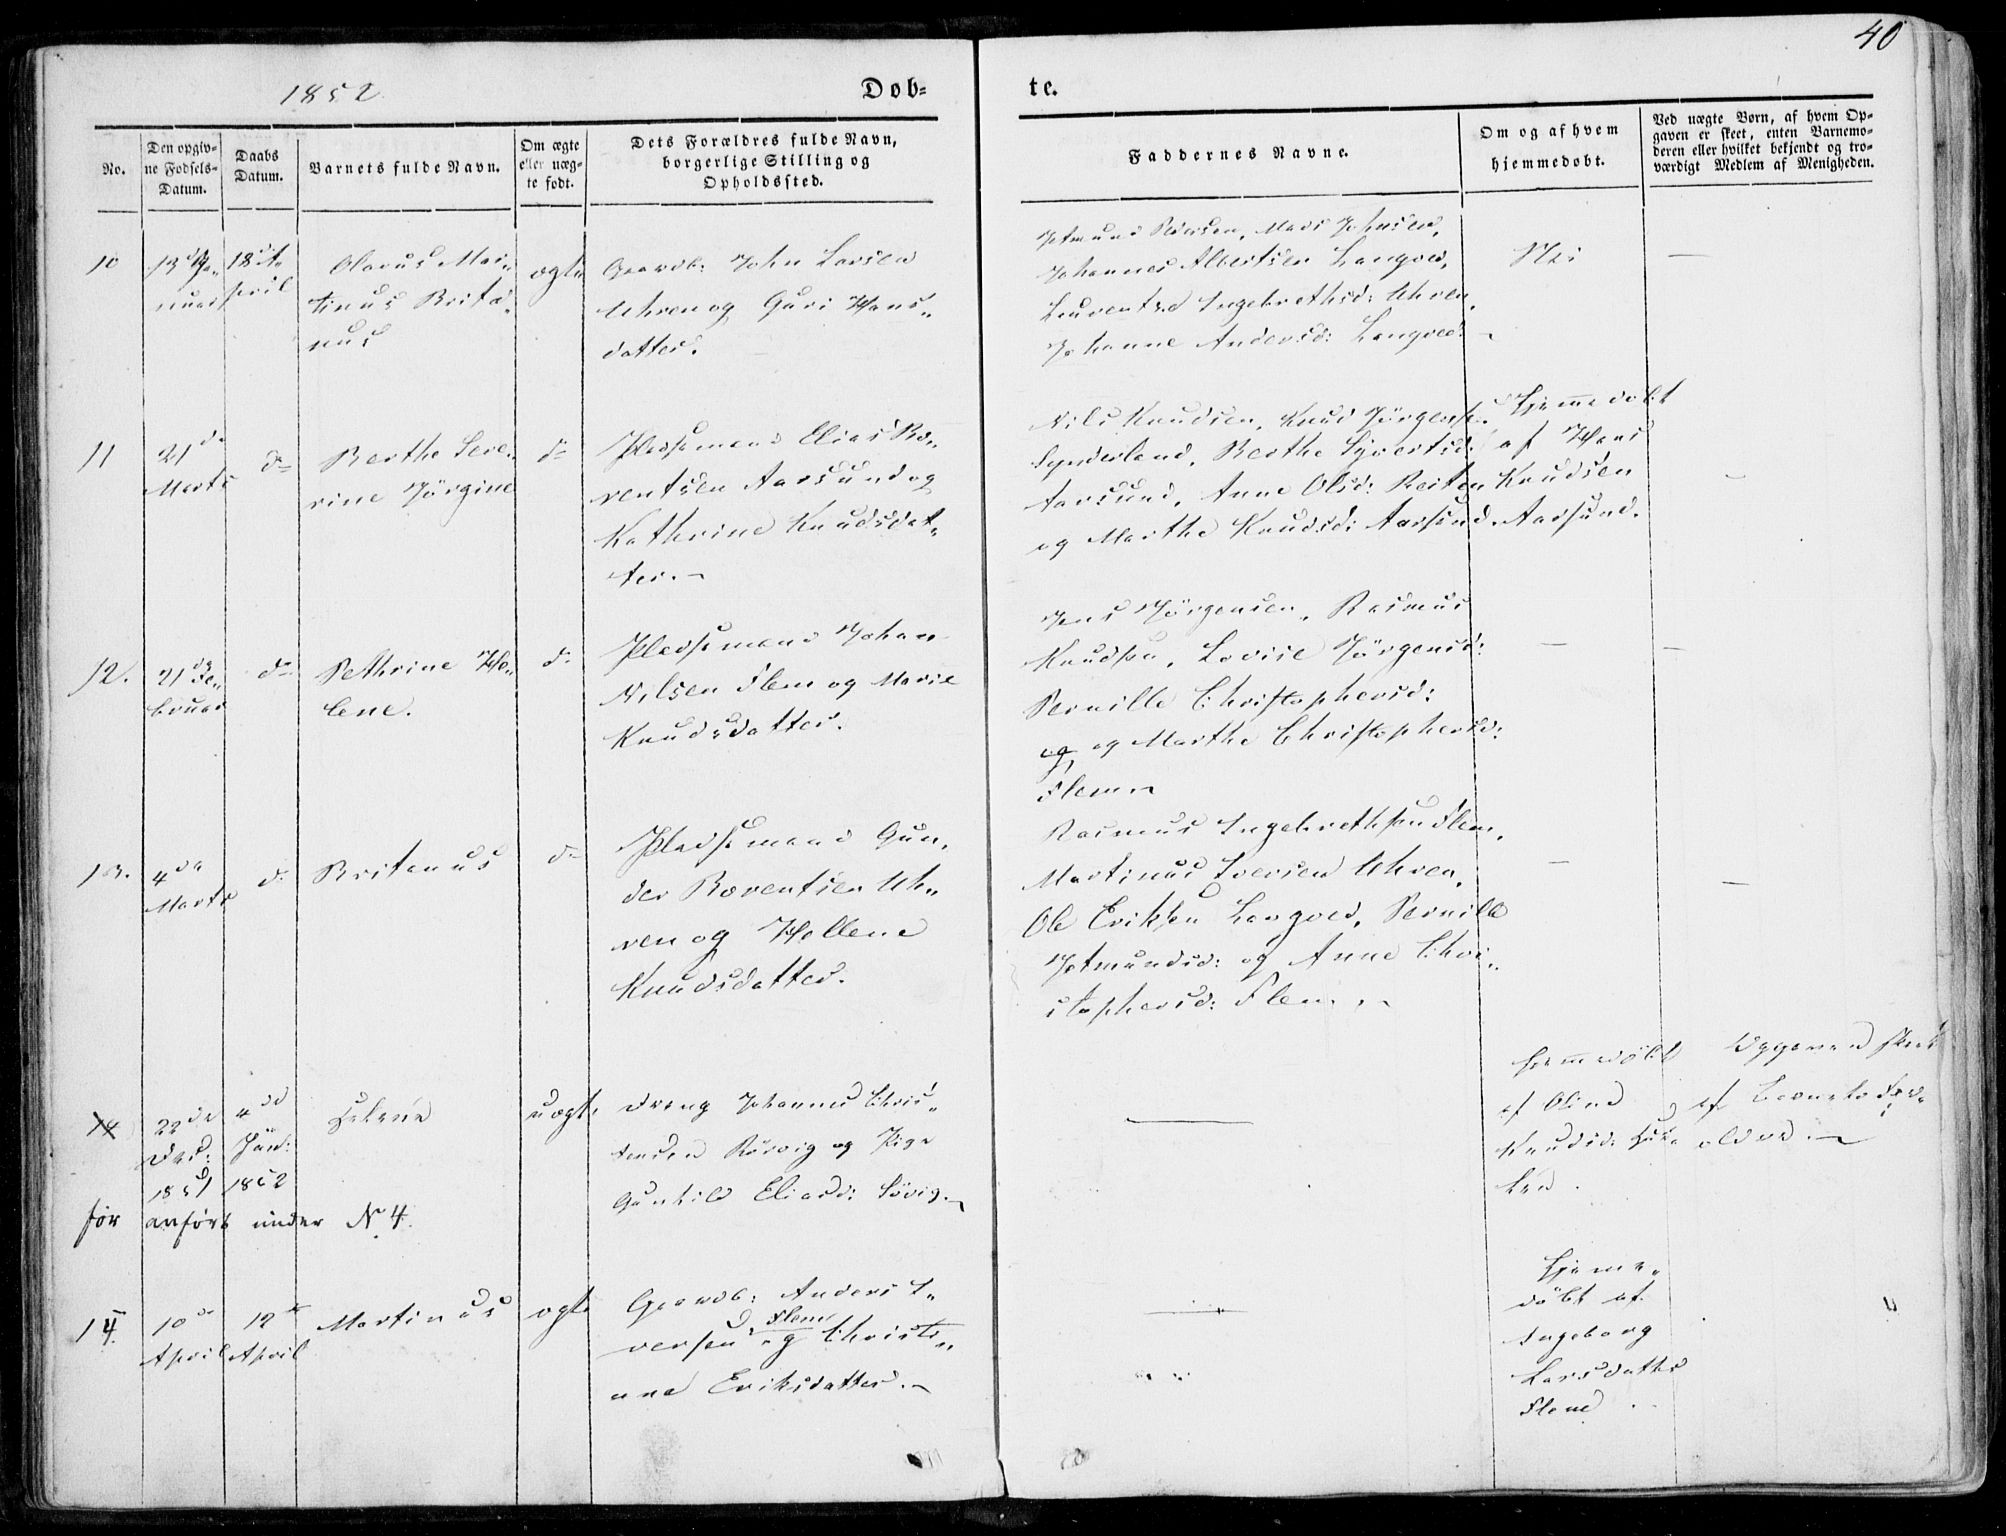 40
1852
Dob-
te.
No.
Den opgiv-
ne Fødsels-
Datum.
Daabs
Datum.
Barnets fulde Navn.
Om ægte
eller uæg-
te født.
Dets Forældres fulde Navn,
borgerlige Stilling og
Opholdssted.
Faddernes Navne.
Om og af hvem
hjemmedøbt.
Ved uægte Børn, af hvem Op-
gaven er skeet, enten Barnemo-
deren eller hvilket bekjendt og tro-
værdigt Medlem af Menigheden.
10
13de Ja-
nuar
18de A-
pril
Olavus Mar-
tinus Brita-
nus
ægte
Gaardb: John Larsen
Uhren og Guri Hans-
datter.
Johannes Albertsen Langved,
Ingebrethsd: Uhren,
Johanne Andersd: Langved.
Nei
11
21de
Marts
do
Berthe Seve-
rine Jörgine
do
Pladsemand Elias Bo-
rentsen Aarsund og
Kathrine Knudsdat-
ter.
Nils Knudsen, Knud Jörgens.
Synderland, Berthe Syvertsd:
Aarsund, Anne Olsd: Reiten
og Marthe Knudsd: Aarsund.
Hjemmedöbt
af Hans
Knudsen
Aarsund.
12.
21de Fe-
bruar
do
Pethrine He-
lene.
do
Pladsemand Johan
Nilsen Flem og Marie
Knudsdatter.
Jens Jörgensen, Rasmus
Knudsen, Lovise Jörgensd:
Pernille Christophersd:
og og Marthe Christophersd:
Flem
13.
4de
Marts
do
Britanus
do
Pladsemand Gun-
der Borentsen Uh-
ren og Hellene
Knudsdatter.
Rasmus Ingebrethsen Flem,
Martinus Iversen Uhren,
Ole Eriksen Langved, Pernille
Jetmundsd: og Anne Chri-
stophersd: Flem.
14
22de
Dec:
1851
4de
Jan:
1852
uægte
Dreng Johannes Chris-
tensen Rörvig og Pige
Gunhild Eliasd: Sövig.
Hjemmedöbt
af Oline
Knudsd:
Opgaven skeet
af Barnets For-
ældre.
før anført under No 4.
14.
10de
April
12te
April
Martinus
ægte
Gaardb: Anders I-
versen Flem og Christi-
ane Eriksdatter.
Hjemme-
döbt af
Ingeborg
Larsdatter
Flem.